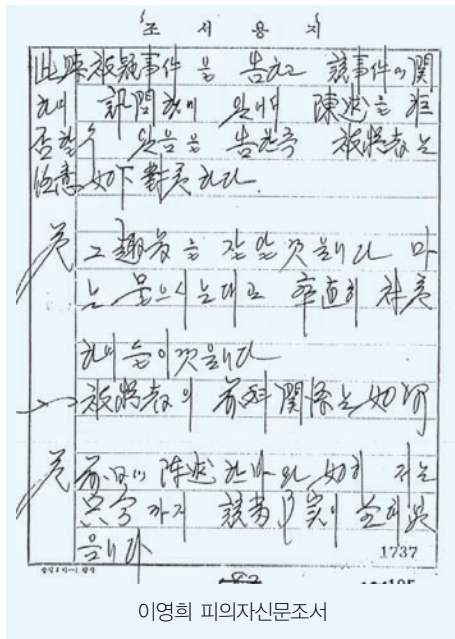 조서용지
此際 被疑事件을 告하고 該事件에 關
하여 訊問함에 있어서 陳述을 拒
否할 수 있음을 告한즉 被疑者는
任意 如下 對答하다.
答 그 趣旨를 잘 알겠습니다 마
는 물으시는대로 率直히 対答
하여 들이겠습니다
問 被疑者의 前科關係는 如何
答 前日에 陳述한바와 如히 저는
只今까지 該当事実이 全히 없
읍니다
1737
이영희 피의자신문조서